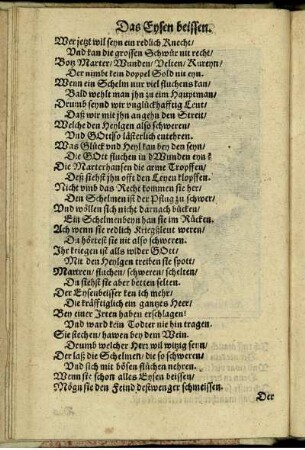 Das Eysen beissen.
Wer jetzt wil seyn ein redlich Knecht/
Vnd kan die grossen Schwür nit recht/
Botz Marter/ Wunden/ Velten/ Kureyn/
Der nimbt kein doppel Sold nit eyn.
Wenn ein Schelm nur viel fluchens kan/
Bald wehlt man jhn zu eim Hauptman/
Drumb seynd wir vnglückhafftig Leut/
Daß wir mit jhn angehn den Streit/
Welche den Heylgen also schweren/
Vnd GOtt so lästerlich entehren.
Was Glück vnd Heyl kan bey den seyn/
Die GOtt fluchen in d'Wunden eyn?
Die Marterhansen die arme Tropffen/
Deß siehst jhn offt den Leyen klopffen.
Nicht vmb das Recht kommen sie her/
Den Schelmen ist der Pflug zu schwer/
Vnd wöllen sich nicht darnach bücken/
Ein Schelmenbeyn han sie im Rücken.
Ach wenn sie redlich Kriegsleut weren/
Du hörtest sie nit also schweren.
Ihr kriegen ist als wider GOtt/
Mit den Heylgen treiben sie spott/
Martren/ fluchen/ schweren/ schelten/
Du siehst sie aber betten selten.
Der Eysenbeisser ken ich mehr/
Die kräfftiglich ein gantzes Heer/
Bey einer Irten haben erschlagen/
Vnd ward kein Todter nie hin tragen.
Sie stechen/ hawen bey dem Wein.
Drumb welcher Herr wil witzig seyn/
Der laß die Schelmen/ die so schweren/
Vnd sich mit bösen flüchen nehren.
Wenn sie schon alles Eysen beissen/
Mögn sie den Feind destwenger schmeissen.
Der